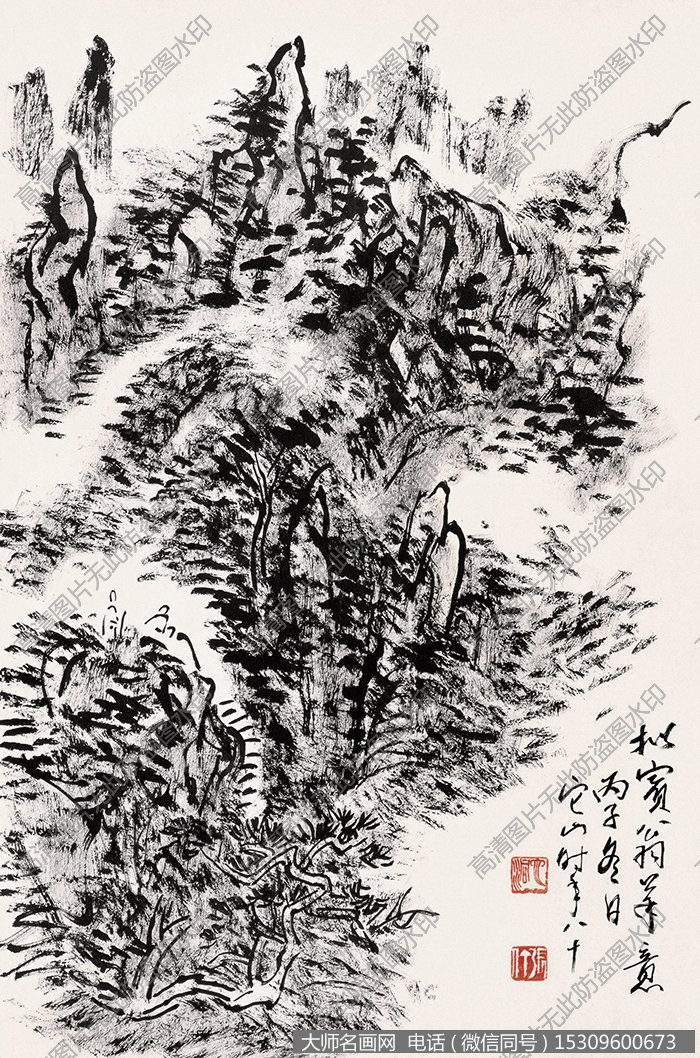 拟宾翁笔意
丙子冬日
它山时年八十
高清图片无此防盗图水印
大师名画网 电话（微信同号）15309600673